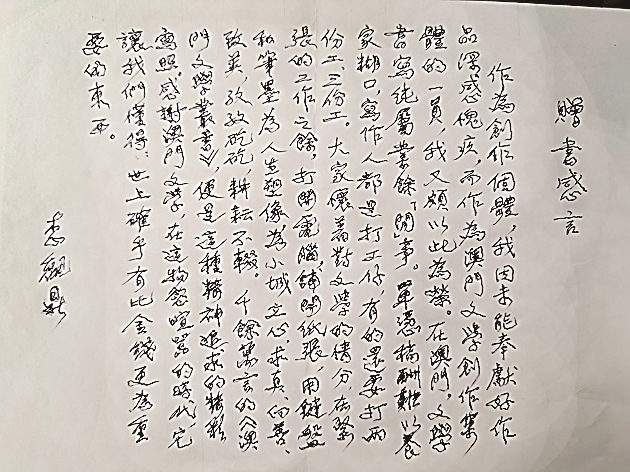 贈書感言
作為創作個體，我因未能奉獻好作
品深感愧疚，而作為澳門文學創作業
體的一員，我又頗以此為榮。在澳門，文學
書寫純屬業餘「閒事」。單憑稿酬難以養
家糊口，寫作人都是打工仔，有的還要打兩
份工、三份工。大家懷着對文學的情分在緊
張的工作之餘，打開電腦，鋪開紙張，用鍵盤
和筆墨為人生塑像，為小城立心。求真、向善、
致美，孜孜矻矻，耕耘不輟。千餘萬言的《澳
門文學叢書》，便是這種精神追求的精彩
寫照。感謝澳門文學，在這物慾喧囂的時代，它
讓我們懂得：世上確乎有比金錢更為重
要的東西。
李觀鼎